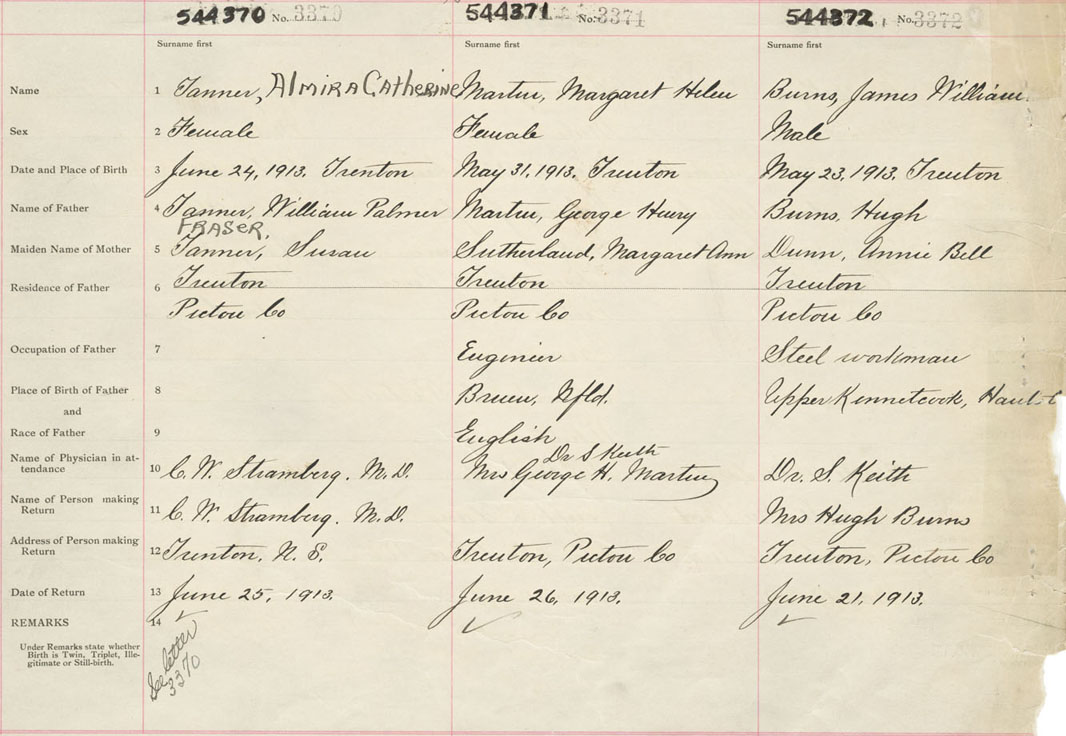 544370 No. 3370 544371 No. 3371 544372 No. 3372
Surname first Surname first Surname first
Name 1 Tanner, Almira Catherine Martin, Margaret Helen Burns, James William
Sex 2 Female Female Male
Date and Place of Birth 3 June 24, 1913. Trenton May 31, 1913. Trenton May 23, 1913. Trenton
Name of Father 4 Tanner, William Palmer Martin, George Henry Burns, Hugh
FRASER.
Maiden Name of Mother 5 Tanner, Susan Sutherland, Margaret Ann Dunn, Annie Bell
Residence of Father 6 Trenton Trenton Trenton
Pictou Co Pictou Co Pictou Co
Occupation of Father 7 Engineer Steel workman
Place of Birth of Father 8 Nfld. Upper Kennetcook,
and
Race of Father 9 English
Name of Physician in at- Dr S Keith
tendance 10 C. W. Stramberg. M. D. Mrs George H. Martin Dr. S. Keith
Name of Person making
Return 11 C. W. Stramberg. M. D. Mrs Hugh Burns
Address of Person making
Return 12 Trenton, N. S. Trenton, Pictou Co Trenton, Pictou Co
Date of Return 13 June 25, 1913. June 26, 1913. June 21, 1913.
REMARKS 14
Under Remarks state whether
Birth is Twin, Triplet, Ille-
gitimate or Still-birth.
See letter
3370